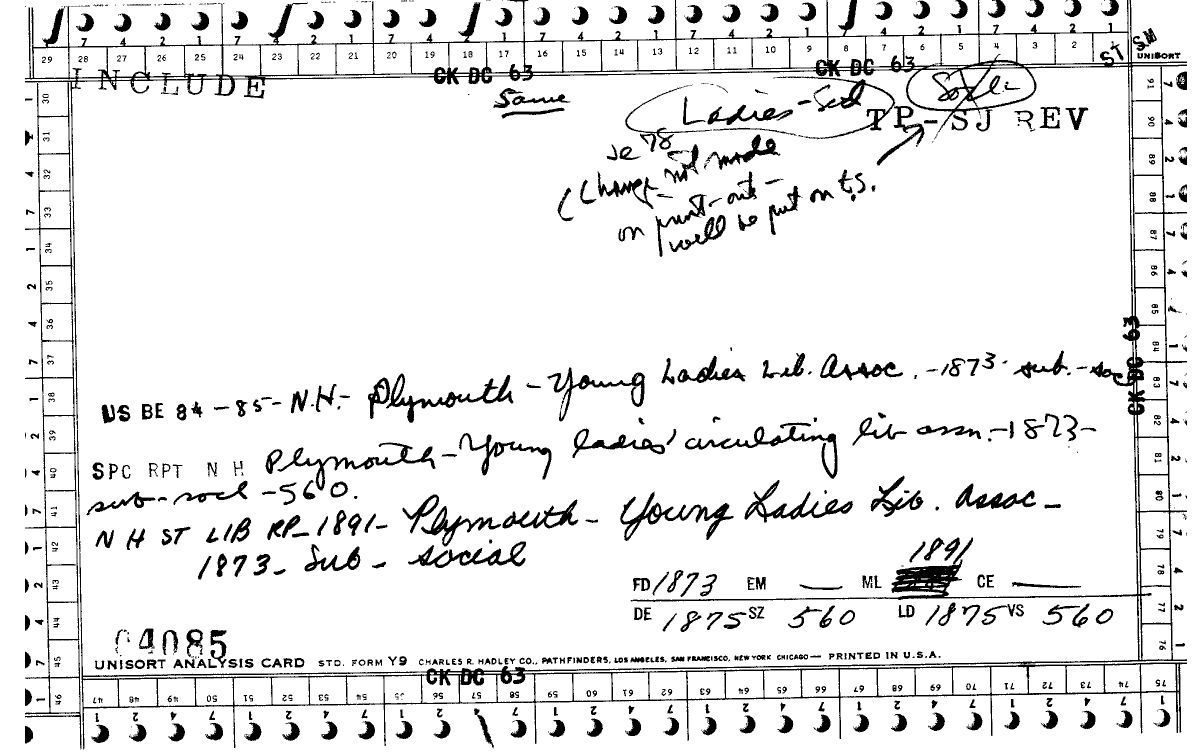 7 4 2 1 7 4 2 1 7 4 2 1 7 4 2 1 7 4 2 1 7 4 2 1 7 4 2 1
29 28 27 26 25 24 23 22 21 20 19 18 17 16 15 14 13 12 11 10 9 8 7 6 5 4 3 2 ST SM
UNISORT
INCLUDE CK DC 63 CK DC 63
Same
Ladies-Scl
TP-SJ REV
Je 78
(Change not made
on print-out-
will be put on t.s.
CK DC 63
US BE 84-85- N.H.- Plymouth - Young Ladies Lib. Assoc. -1873- sub.-soc
SPC RPT N H Plymouth-Young ladies' circulating lib assn.-1873-
sub-socl -560.
N H ST LIB RP-1891- Plymouth- Young Ladies Lib. Assoc-
1873- Sub- social
1891
FD 1873 EM — ML CE —
DE 1875 SZ 560 LD 1875 VS 560
04085
UNISORT ANALYSIS CARD STD. FORM Y9 CHARLES R. HADLEY CO., PATHFINDERS, LOS ANGELES, SAN FRANCISCO, NEW YORK CHICAGO— PRINTED IN U.S.A.
CK DC 63
47 48 49 50 51 52 53 54 55 56 57 58 59 60 61 62 63 64 65 66 67 68 69 70 71 72 73 74 75